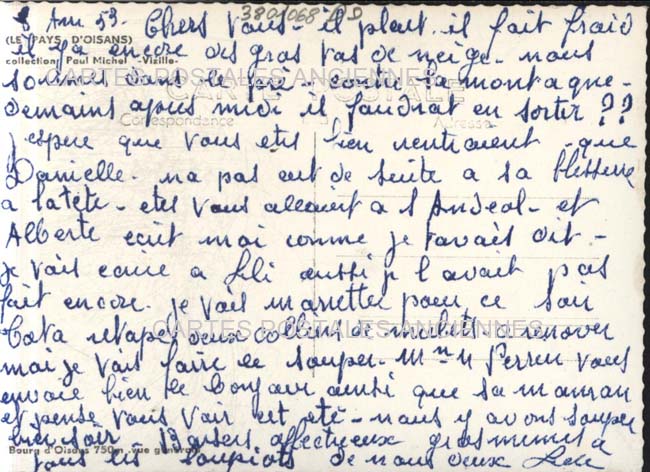 Am 53. Chers vous - il pleut. il fait froid
3801068
(LE PAYS D'OISANS)
il y a encore des gros tas de neige - nous
collection Paul Michel -Vizille-
sommes dans le pré - contre la montagne -
CARTES POSTALES ANCIENNES
CARTE POSTALE
demains apres midi il faudrat en sortir ??
Correspondance
Adresse
j'espere que vous etes bien rentraient - que
Danielle - na pas eut de suite a sa blessure
a latete - etes vous allaient a St Andeol - et
Alberte ecrit moi comme je t'avais dit -
je vais ecrire a Lili aussi je l'avait pas
fait encore. je vais m'arretter pour ce soir
CARTES POSTALES ANCIENNES
retape deux colliers de mulets a renover
moi je vais faire le souper - Mme Perren vous
envoie bien le bonjour ainsi que sa maman
et pense vous voir cet eté - nous y avons souper
hier soir Baisers affectueux gros mimis a
Bourg d'Oisans 750m vue générale
tous les loupiots de nous deux